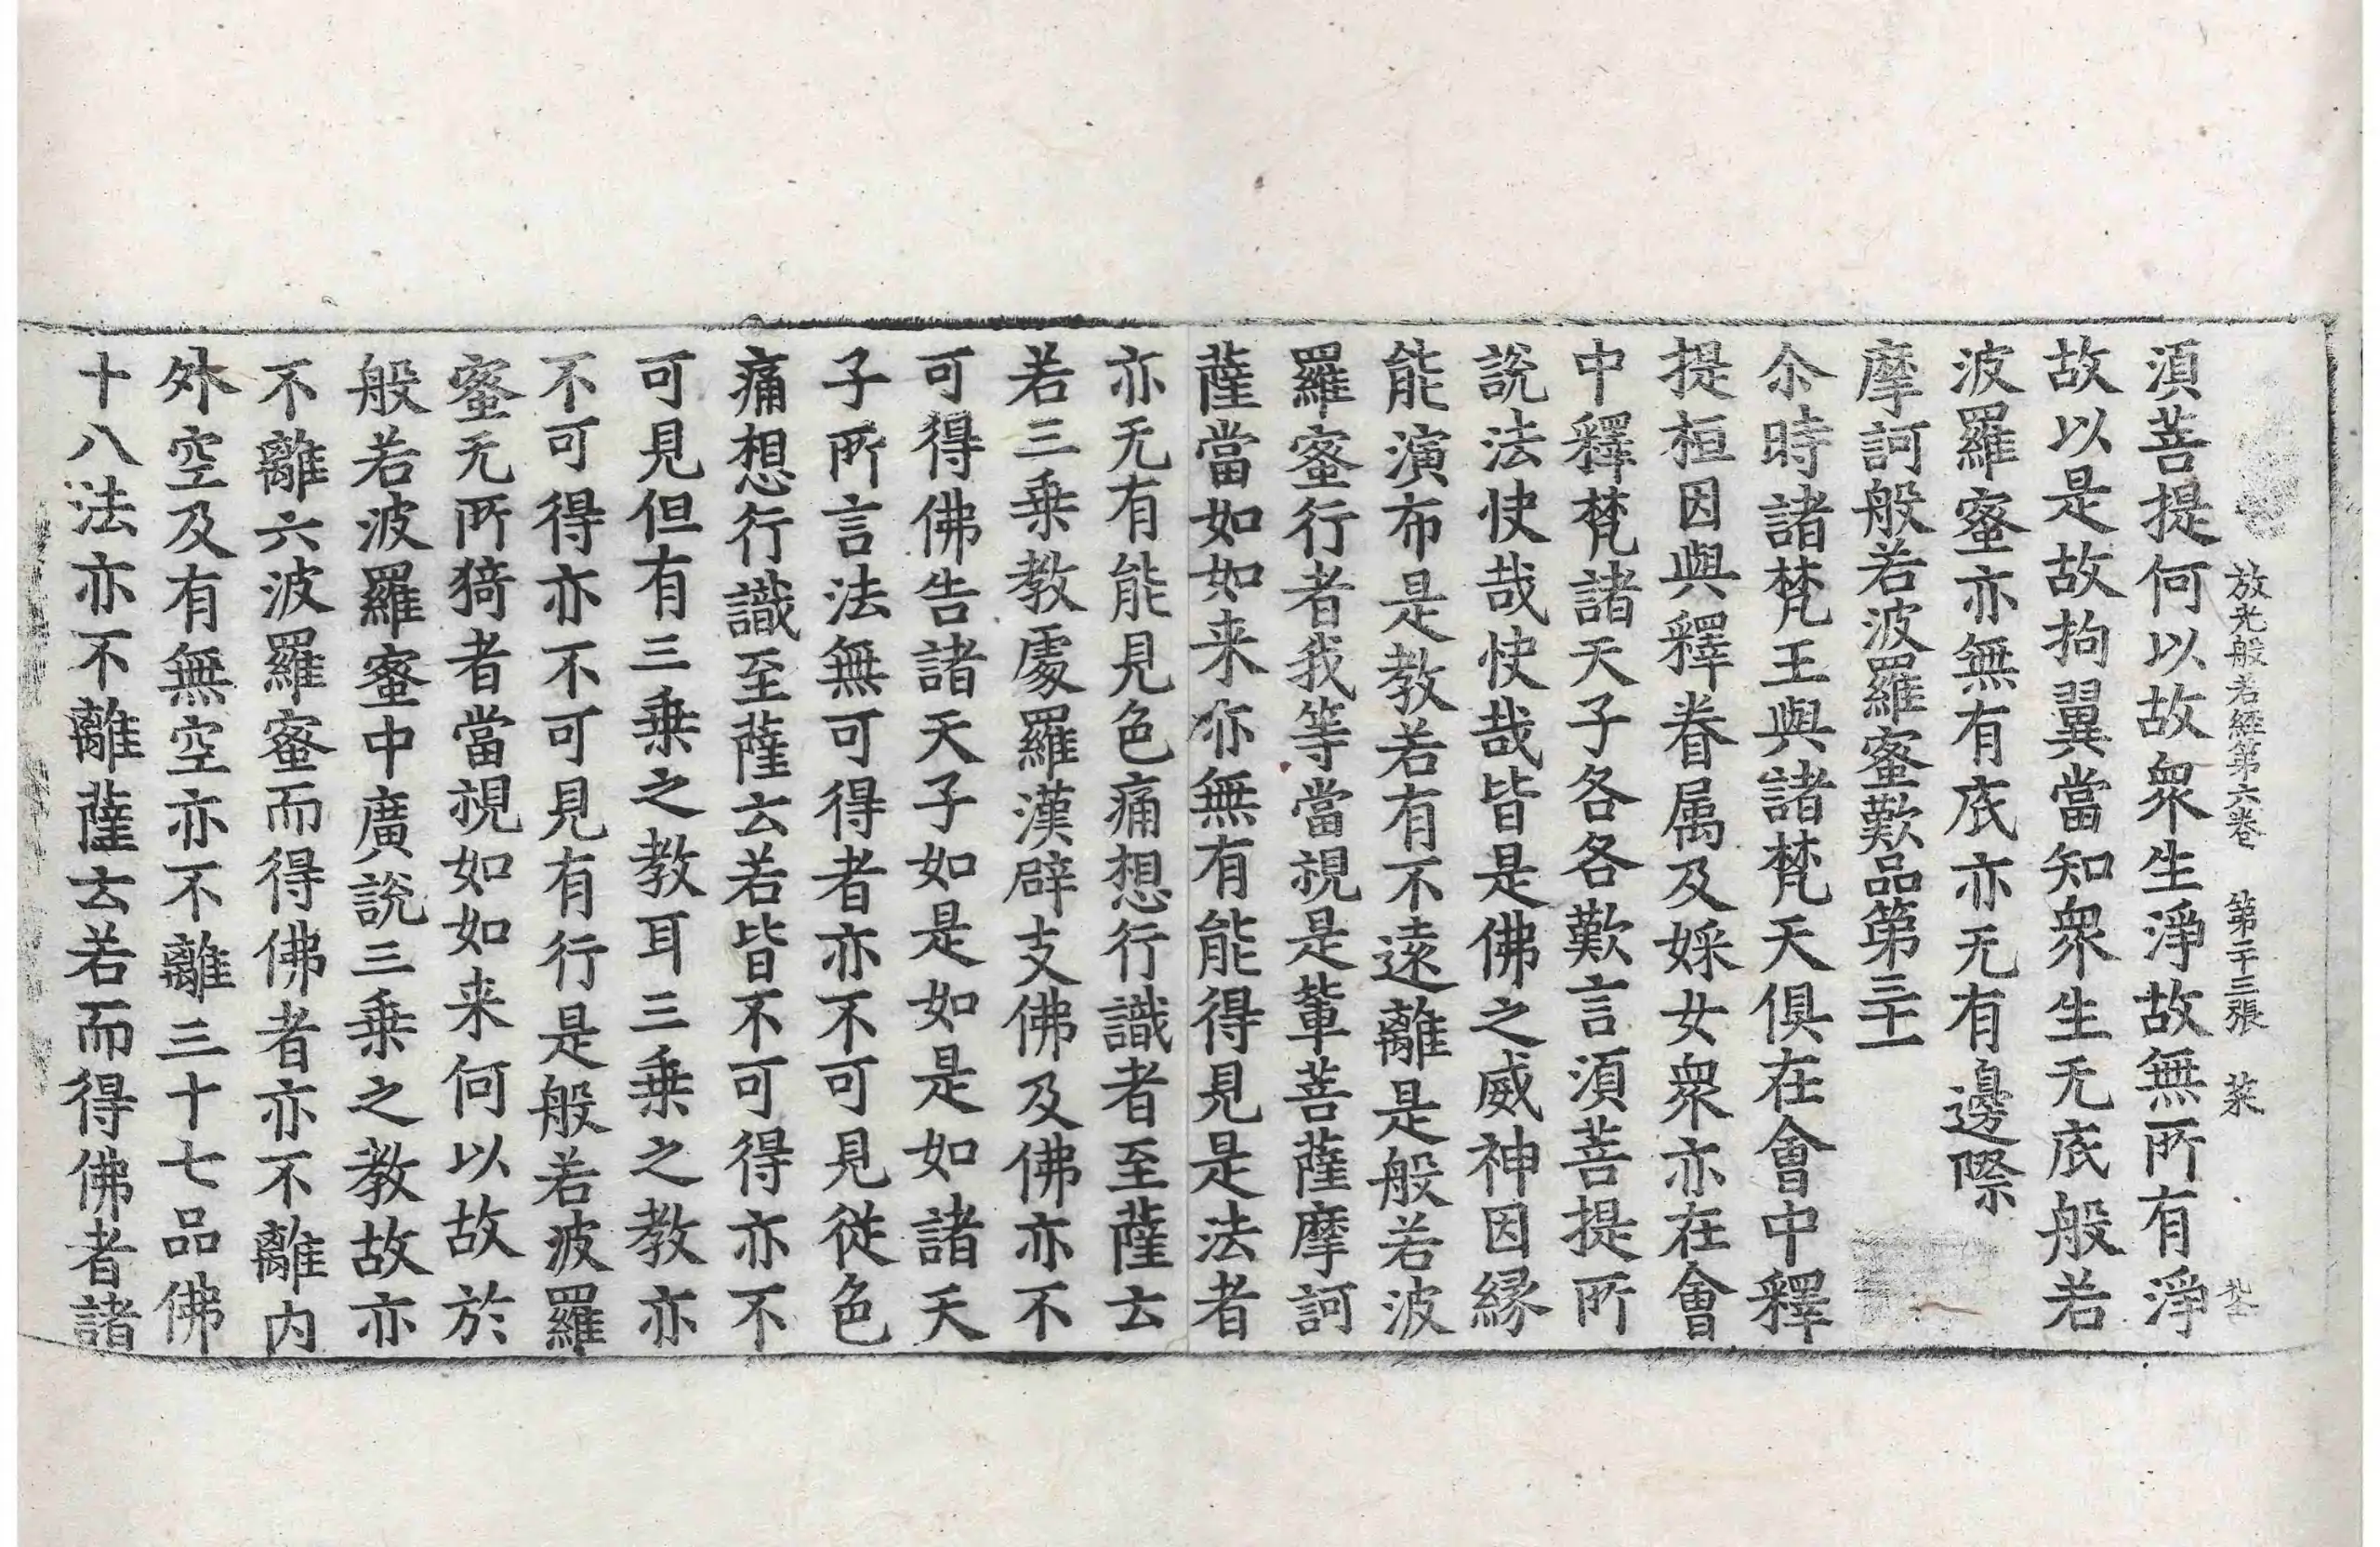 放光般若經第六卷　第二十三張　菜
須菩提何以故衆生淨故無所有淨
故以是故拘翼當知衆生无底般若
波羅蜜亦無有底亦无有邊際
摩訶般若波羅蜜歎品第三十一
尒時諸梵王與諸梵天俱在會中釋
提桓因與釋眷属及婇女衆亦在會
中釋梵諸天子各各歎言須菩提所
說法快哉快哉皆是佛之威神因緣
能演布是教若有不遠離是般若波
羅蜜行者我等當視是輩菩薩摩訶
薩當如如来亦無有能得見是法者
亦无有能見色痛想行識者至薩云
若三乗教處羅漢辟支佛及佛亦不
可得佛告諸天子如是如是如諸天
子所言法無可得者亦不可見從色
痛想行識至薩云若皆不可得亦不
可見但有三乗之教耳三乗之教亦
不可得亦不可見有行是般若波羅
蜜无所猗者當視如如来何以故於
般若波羅蜜中廣說三乗之教故亦
不離六波羅蜜而得佛者亦不離内
外空及有無空亦不離三十七品佛
十八法亦不離薩云若而得佛者諸